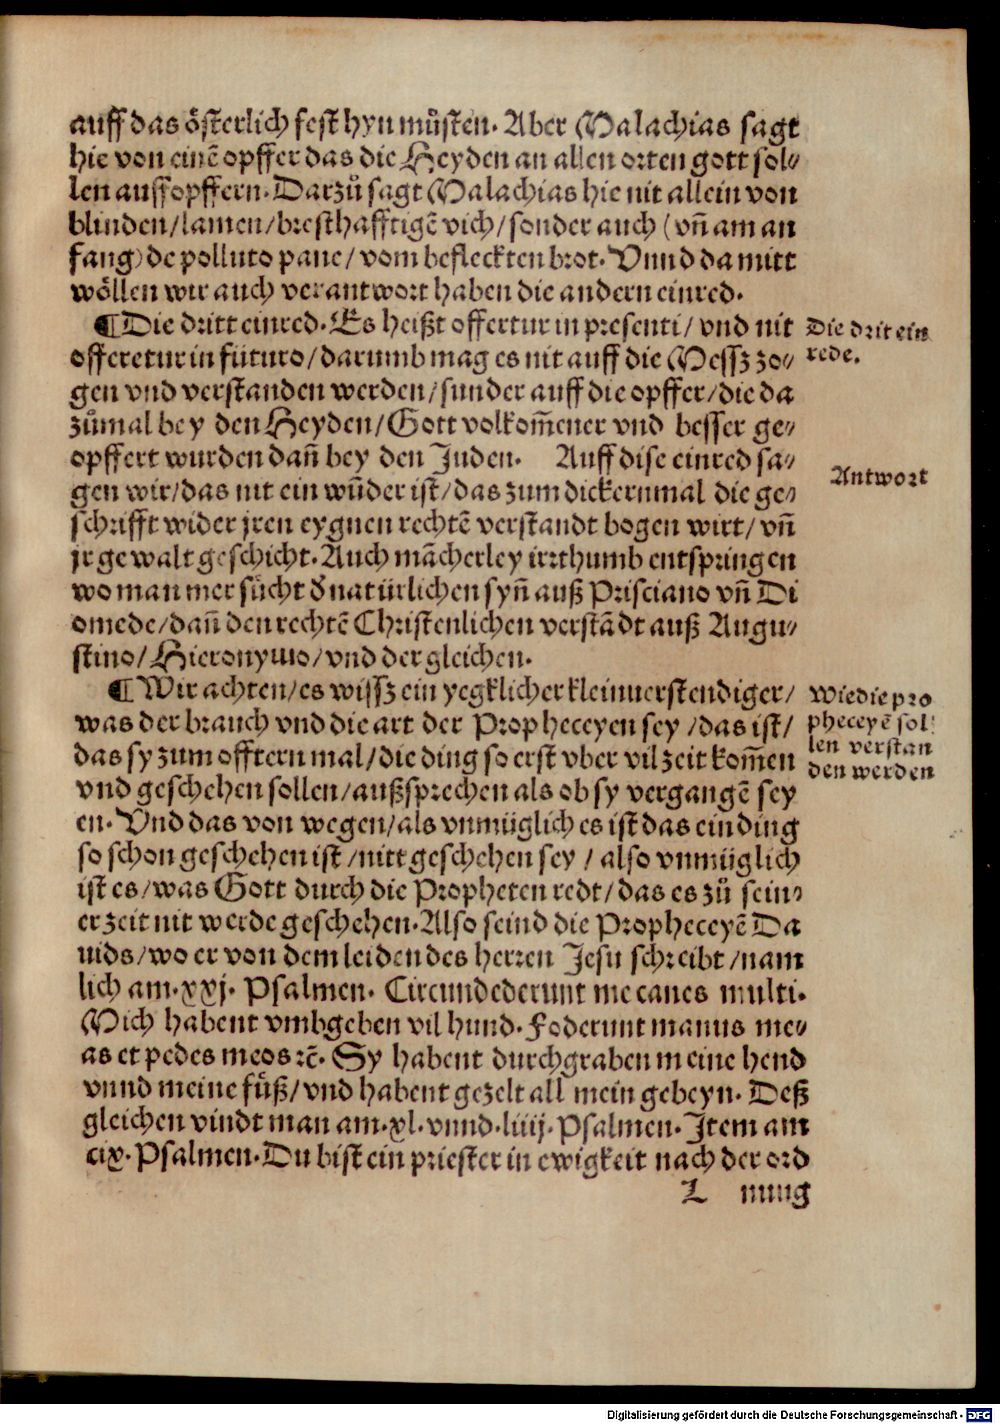 auff das österlich fest hyn můsten. Aber Malachias sagt
hie von einē opffer das die Heyden an allen orten gott sol⸗
len auffopffern. Darzů sagt Malachias hie nit allein von
blinden/lamen/bresthafftigē vich/sonder auch (vñ am an
fang) de polluto pane/ vom befleckten brot. Vnnd da mitt
wöllen wir auch verantwort haben die andern einred.
¶Die dritt einred. Es heißt offertur in presenti/ vnd nit
Die drit ein
offeretur in futuro/darumb mag es nit auff die Messz zo⸗
rede.
gen vnd verstanden werden/sunder auff die opffer/die da
zůmal bey den Heyden/Gott volkom̄ener vnd besser ge⸗
opffert wurden dañ bey den Juden. Auff dise einred sa⸗
Antwort
gen wir/das nit ein wūder ist/das zum dickernmal die ge⸗
schrifft wider jren eygnen rechtē verstandt bogen wirt/ vñ
jr gewalt geschicht. Auch mācherley irrthumb entspringen
wo man mer sůcht ð natürlichen syñ auß Prisciano vñ Di
omede/dañ den rechtē Christenlichen verstādt auß Augu⸗
stino/Hieronymo/vnd der gleichen.
¶Wir achten/es wissz ein yegklicher kleinuerstendiger/
Wie die pro
was der brauch vnd die art der Propheceyen sey/das ist/
pheceyē sol⸗
das sy zum offtern mal/die ding so erst vber vil zeit kom̄en
len verstan
den werden
vnd geschehen sollen/außsprechen als ob sy vergangē sey
en. Vnd das von wegen/als vnmüglich es ist das ein ding
so schon geschehen ist/nitt geschehen sey/ also vnmüglich
ist es/was Gott durch die Propheten redt/das es zů sein⸗
er zeit nit werde geschehen. Also seind die Propheceyē Da
uids/wo er von dem leiden des herren Jesu schreibt/nam
lich am.xxj. Psalmen. Circundederunt me canes multi.
Mich habent vmbgeben vil hund. Foderunt manus me⸗
as et pedes meos ꝛc̄. Sy habent durchgraben meine hend
vnnd meine füß/vnd habent gezelt all mein gebeyn. Deß
gleichen vindt man am.xl.vnnd.liiij.Psalmen. Item am
cix.Psalmen. Du bist ein priester in ewigkeit nach der ord
L nung
Digitalisierung gefördert durch die Deutsche Forschungsgemeinschaft - DFG